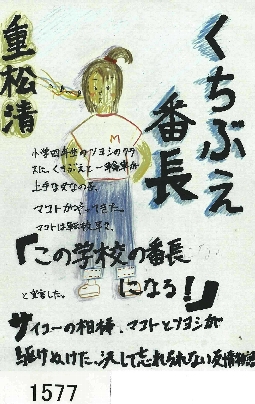 くちぶえ
番長
重松清
M
小学四年生のツヨシのクラ
スに、くちぶえと一輪車が
上手な女の子、
マコトがやってきた。
マコトは転校早々、
「この学校の番長
になる!」
と宣言した。
サイコーの相棒、マコトとツヨシが
駆けぬけた、決して忘れられない友情物語
1577